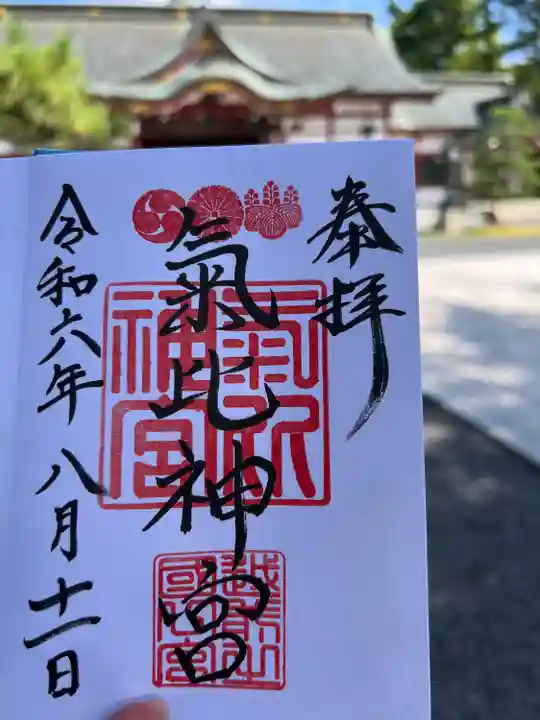 奉拝
氣比神宮
氣比神宮
越前一宮
令和六年八月十一日